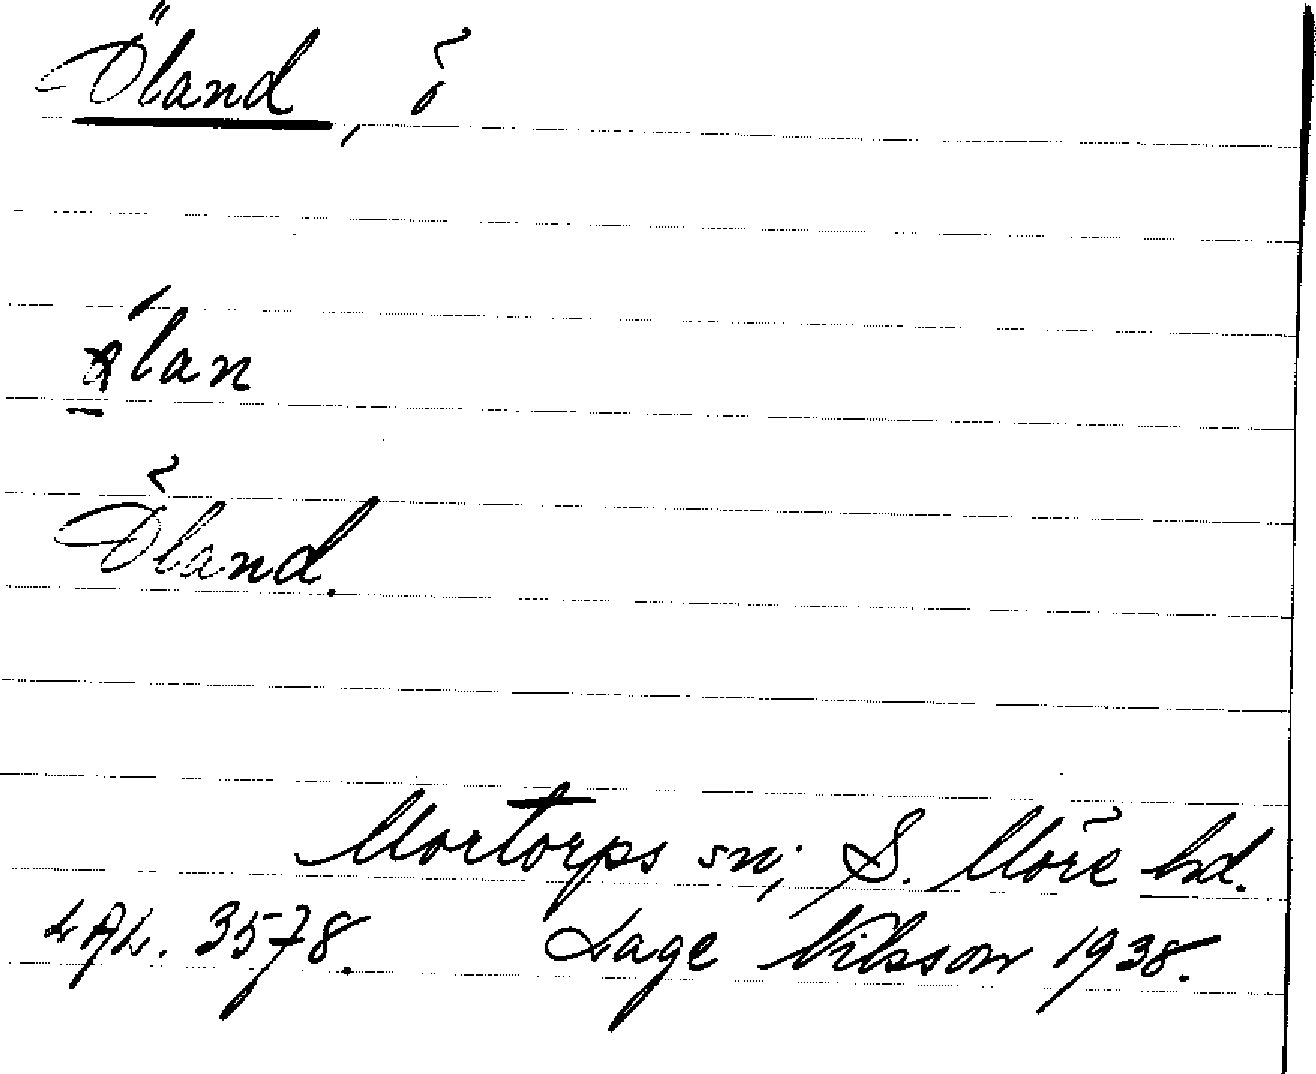 Öland, ö
ö́lan
Öland.
Mortorps sn; S. Möre hd.
LAL. 3578. Lage Nilsson 1938.